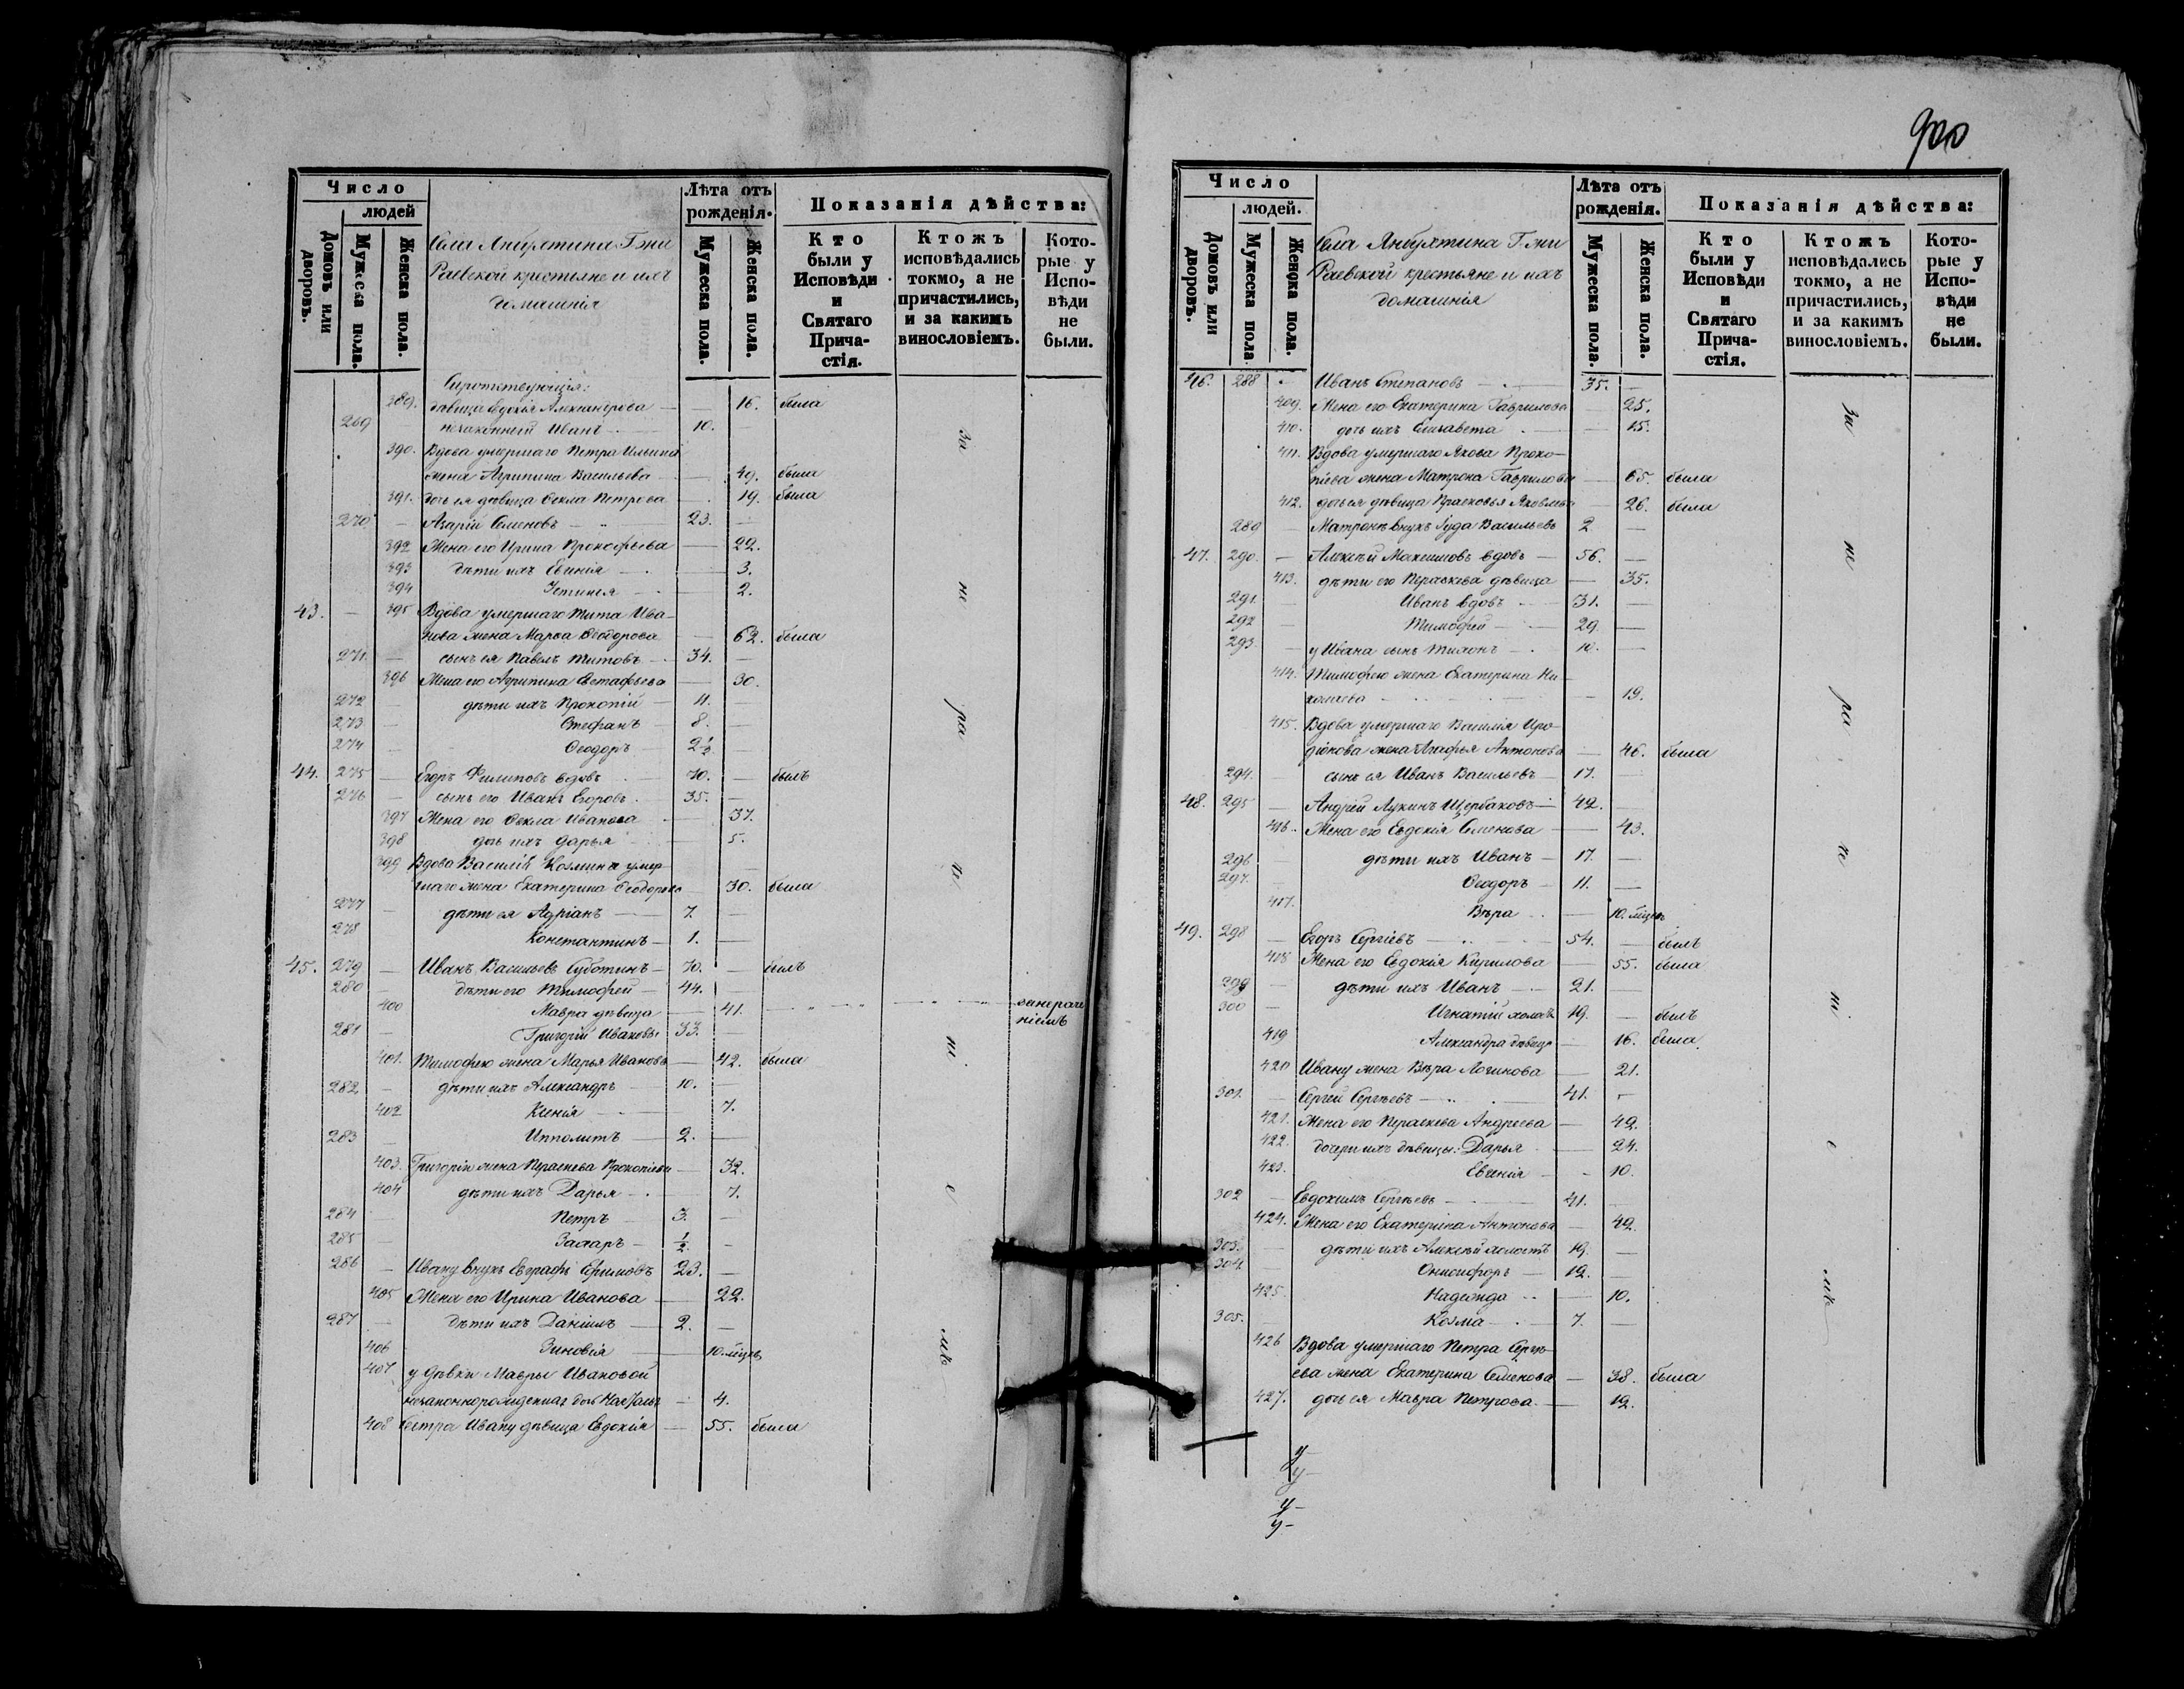 Число
людей
Домовъ или дворовъ.
Мужеска пола.
Женска пола.
Села Янбухтина Гжи
Раевской крестьяне и ихъ
домашнія
Лѣта отъ
рожденія.
Мужеска пола.
Женска пола.
Показанія дѣйства:
Кто
были у
Исповѣди
и
Святаго
Прича-
стія.
Ктожъ
исповѣдались
токмо, а не
причастились,
и за какимъ
винословіемъ.
Кото-
рые у
Испо-
вѣди
не
были.
Сиротствующія:
389. дѣвица Евдокія Александрова — 16. была
269 — незаконный Иванъ — 10. —
390. Вдова умершаго Петра Ильина
жена Агрипина Васильева — 49. была
391. дочь ея дѣвица Ѳекла Петрова — 19. была
270 — Азарій Семеновъ — 23. —
392 Жена его Ирина Прокофьева — 22.
393 дѣти ихъ Евгенія — 3.
394 Устинья — 2.
43. — 395 Вдова умершаго Тита Ива-
нова жена Марѳа Ѳеодорова — 62. была
271. — сынъ ея Павелъ Титовъ — 34. —
396 Жена его Агрипина Евстафьева — 30.
272 — дѣти ихъ Прокопій — 11. —
273 — Стефанъ 8. —
274 — Ѳеодоръ 2½ —
44. 275 — Егоръ Филиповъ вдовъ — 70. — былъ
276 — сынъ его Иванъ Егоровъ 35. —
397 Жена его Ѳекла Иванова — 37.
398 дочь ихъ Дарья — 5.
399 Вдова Василія Козмина умер-
шаго жена Екатерина Ѳеодорова 30. была
277 — дѣти ея Адріанъ — 7. —
278 Константинъ — 1. —
45. 279 — Иванъ Васильевъ Суботинъ — 70. — былъ
280 — дѣти его Тимофей — 44. —
400 Мавра дѣвица — 41. — занераче
ніемъ
281 — Григорій Ивановы 33. —
401. Тимофею жена Марья Иванова — 42. была
282 — дѣти ихъ Александръ — 10. —
402 Ксенія — 7.
283 — Ипполитъ — 2. —
403. Григорію жена Параскева Прокопіева — 32.
404 дѣти ихъ Дарья — 7.
284 — Петръ — 3. —
285 — Захаръ — ½ —
286 — Ивану внукъ Евграфъ Ефимовъ 23. —
405 Жена его Ирина Иванова — 22.
287 — дѣти ихъ Даніилъ — 2. —
406 Зиновія — 10. мѣцев
407 у дѣвки Мавры Ивановой
незаконнорожденная дочь Наталья — 4.
408 Сестра Ивану дѣвица Евдокія — 55. была
за
не
ра
че
ні
е
мъ
900
Число
людей.
Домовъ или дворовъ.
Мужеска пола
Женска пола.
Села Янбухтина Гжи
Раевской крестьяне и ихъ
домашнія
Лѣта отъ
рожденія.
Мужеска пола.
Женска пола.
Показанія дѣйства:
Кто
были у
Исповѣди
и
Святаго
Прича-
стія.
Ктожъ
исповѣдались
токмо, а не
причастились,
и за какимъ
винословіемъ.
Кото-
рые у
Испо-
вѣди
не
были.
46. 288 Иванъ Степановъ — 35. —
409. Жена его Екатерина Гаврилова — 25.
410. дочь ихъ Елисавета — 15.
411. Вдова умершаго Якова Проко-
піева жена Матрона Гаврилова — 65. была
412. дочь ея дѣвица Прасковья Яковлева — 26. была
289 — Матронѣ внукъ Іуда Васильевъ 2 —
47. 290. — Алексѣй Максимовъ вдовъ — 56. —
413. дѣти его Параскева дѣвица — 35.
291. — Иванъ вдовъ — 31. —
292 — Тимофей — 29. —
293 — у Ивана сынъ Тихонъ — 10. —
414. Тимофею жена Екатерина Ни-
колаева — 19.
415. Вдова умершаго Василія Иро-
діонова жена Агафья Антонова — 46. была
294. сынъ ея Иванъ Васильевъ — 17. —
48. 295 — Андрей Лукинъ Щербаковъ — 42. —
416. Жена его Евдокія Семенова — 43.
296 дѣти ихъ Иванъ — 17. —
297. — Ѳеодоръ — 11. —
417. Вѣра — 10. мѣцев
49. 298 — Егоръ Сергіевъ — 54. — былъ
418 Жена его Евдокія Кирилова — 55. была
299 — дѣти ихъ Иванъ — 21. —
300 — Игнатій холостъ 19. — былъ
419 Александра дѣвица — 16. была
420 Ивану жена Вѣра Логинова — 21.
301. — Сергей Сергѣевъ — 41. —
421. Жена его Параскева Андреева — 42.
422. дочери ихъ дѣвицы: Дарья — 24.
423. Евгенія — 10.
302 — Евдокимъ Сергѣевъ — 41. —
424. Жена его Екатерина Антонова — 42.
303. — дѣти ихъ Алексѣй холостъ 19. —
304 — Онисифоръ — 12. —
425. Надежда — 10.
305. — Козма — 7. —
426 Вдова умершаго Петра Сергѣ-
ева жена Екатерина Семенова — 38. была
427. дочь ея Мавра Петрова — 12.
за
не
ра
че
ні
е
мъ